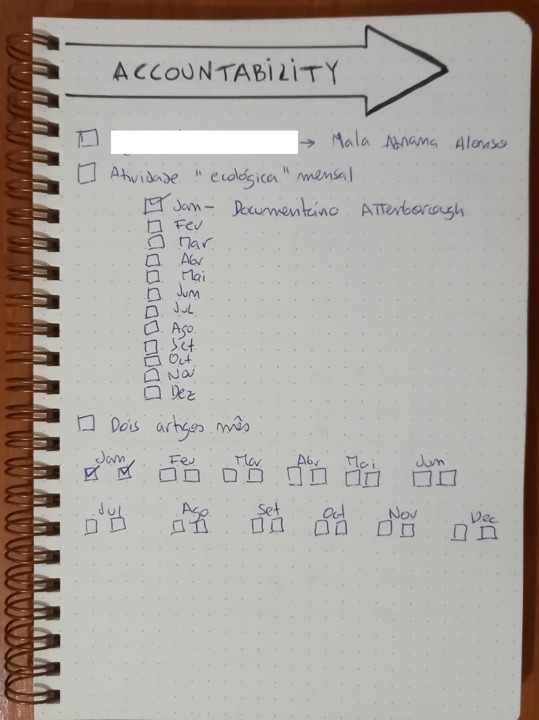 ACCOUNTABILITY
→ Mala Adriana Alonso
Atividade "ecológica" mensal
Jan - Documentário Attenborough
Fev
Mar
Abr
Mai
Jun
Jul
Ago
Set
Oct
Nov
Dez
Dois artigos mês
Jan Fev Mar Abr Mai Jun
Jul Ago Set Oct Nov Dec